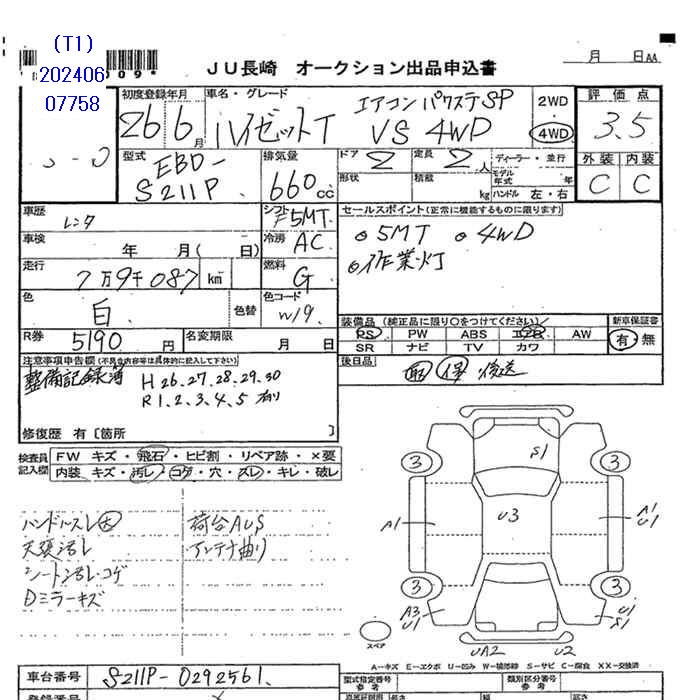 (T1)
202406
07758
009*
JU長崎 オークション出品申込書
月 日AA
初度登録年月 車名・グレード
26 6月 ハイゼットT エアコンパワステSP VS 4WD
2WD
4WD
評価点
3.5
外装 内装
C C
型式 EBD-S211P
排気量 660cc
ドア 2 定員 2人
ディーラー・並行
形状 積載 kg
モデル年式 年
ハンドル 左・右
車歴 レンタ
シフト F5MT
セールスポイント(正常に機能するものに限ります)
車検 年 月( 日)
冷房 AC
5MT 4WD
作業灯
走行 7万9千087 km
燃料 G
色 白 色替
色コード W19
R券 5190円
名変期限 月 日
装備品(純正品に限り○をつけてください)
PS PW ABS エアB AW
SR ナビ TV カワ
新車保証書
有・無
後日品 取 保 後送
注意事項申告欄(不具合内容等は具体的に記入して下さい)
整備記録簿 H26.27.28.29.30
R1.2.3.4.5 有り
修復歴 有[箇所 ]
検査員記入欄
FW キズ・飛石・ヒビ割・リペア跡・×要
内装 キズ・汚レ・コゲ・穴・スレ・キレ・破レ
ハンドルスレ大 荷台AUS
天張汚レ アンテナ曲り
シート汚レ・コゲ
Dミラーキズ
S1
3 3
A1 U3 A1
U1
3 3
A3 U1
U1 S1
スペア
UA2 U2
A-キズ E-エクボ U-凹み W-補修跡 S-サビ C-腐食 XX-交換済
車台番号 S211P-0292561
型式指定番号 参考
類別区分番号 参考
登録番号
長さ 幅 高さ